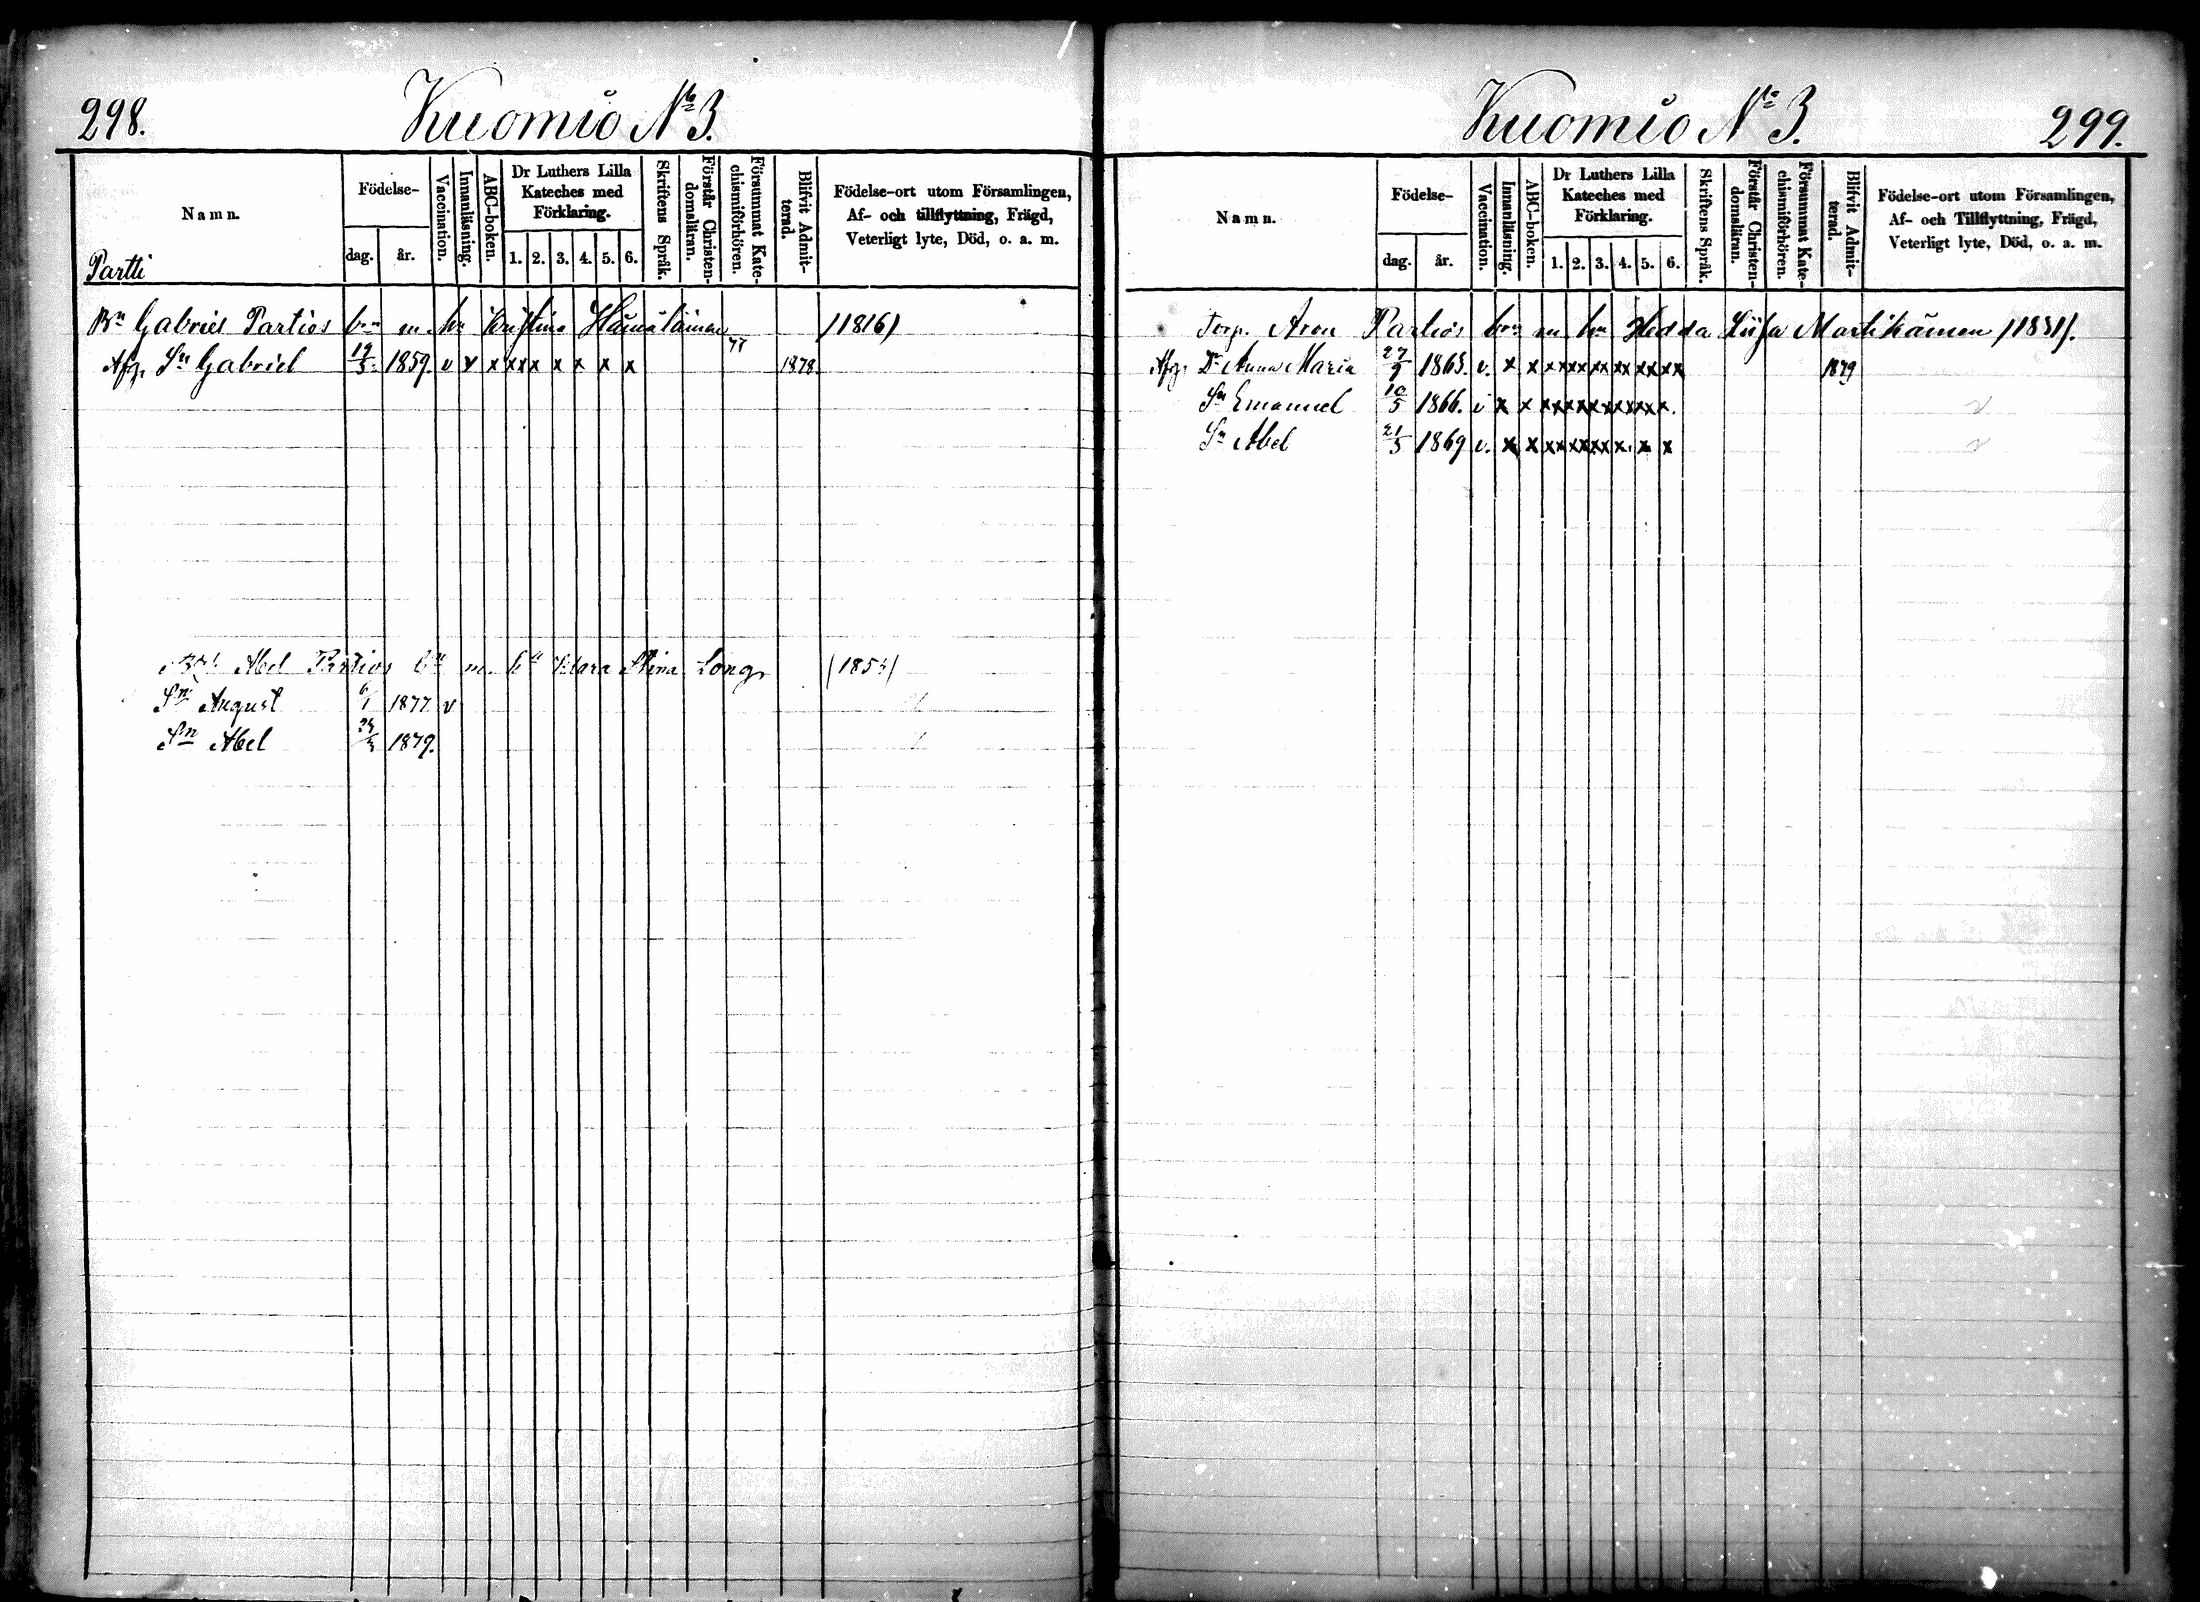 298.
Kuomio No 3.
Namn.
Födelse-
dag.
år.
Vaccination.
Innanläsning.
ABC-boken.
Dr Luthers Lilla Kateches med Förklaring.
1. 2. 3. 4. 5. 6.
Skriftens Språk.
Förstår Christendomsläran.
Försummat Katechismiförhören.
Blifvit Admitterad.
Födelse-ort utom Församlingen, Af- och tillflyttning, Frägd, Veterligt lyte, Död, o. a. m.
Partti
Bn Gabriel Partios bn m. hu Kristina Hämäläinen /1816/
77
Afg. Sn Gabriel 19/3 1859. v x x x x x x x x x 1878.
Abel Partios bn m. hu Klara Stina Long
Sn August 6/1 1877 v
Sn Abel 1879.
Kuomio No 3.
299.
Namn.
Födelse-
dag.
år.
Vaccination.
Innanläsning.
ABC-boken.
Dr Luthers Lilla Kateches med Förklaring.
1. 2. 3. 4. 5. 6.
Skriftens Språk.
Förstår Christendomsläran.
Försummat Katechismiförhören.
Blifvit Admitterad.
Födelse-ort utom Församlingen, Af- och Tillflyttning, Frägd, Veterligt lyte, Död, o. a. m.
Torp. Aron Partios bn m. hu Hedda Liisa Martikainen /1831/.
Afg. Dr Anna Maria 27/9 1863. v. x x xx xx xx xx xx xx 1879
Sn Emanuel 10/5 1866. v x x xx xx xx xx xx x.
Sn Abel 21/5 1869 v. x x xx xx xx x x x